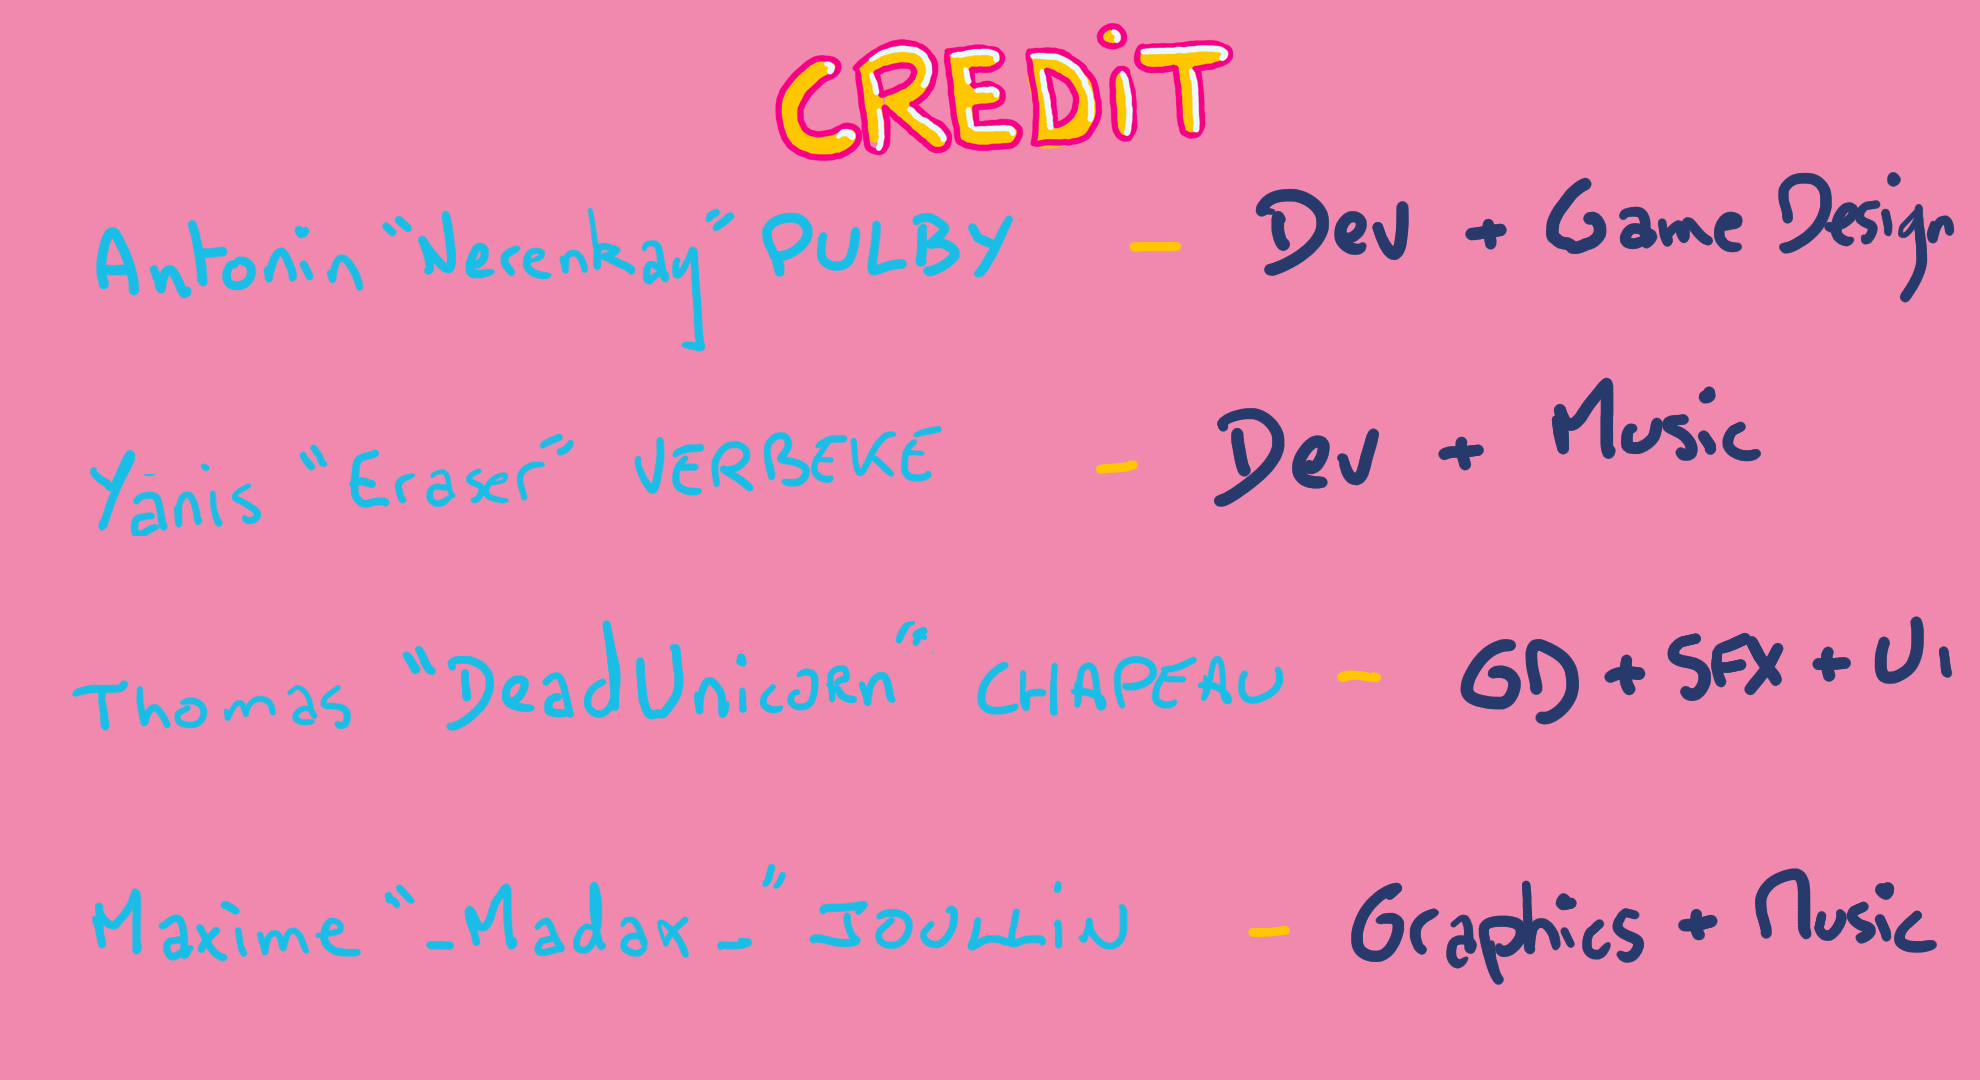 CREDiT
Antonin "Nerenkay" PULBY - Dev + Game Design
Yanis "Eraser" VERBEKE - Dev + Music
Thomas "DeadUnicorn" CHAPEAU - GD + SFX + UI
Maxime "-Madax-" JOULLiN - Graphics + Music